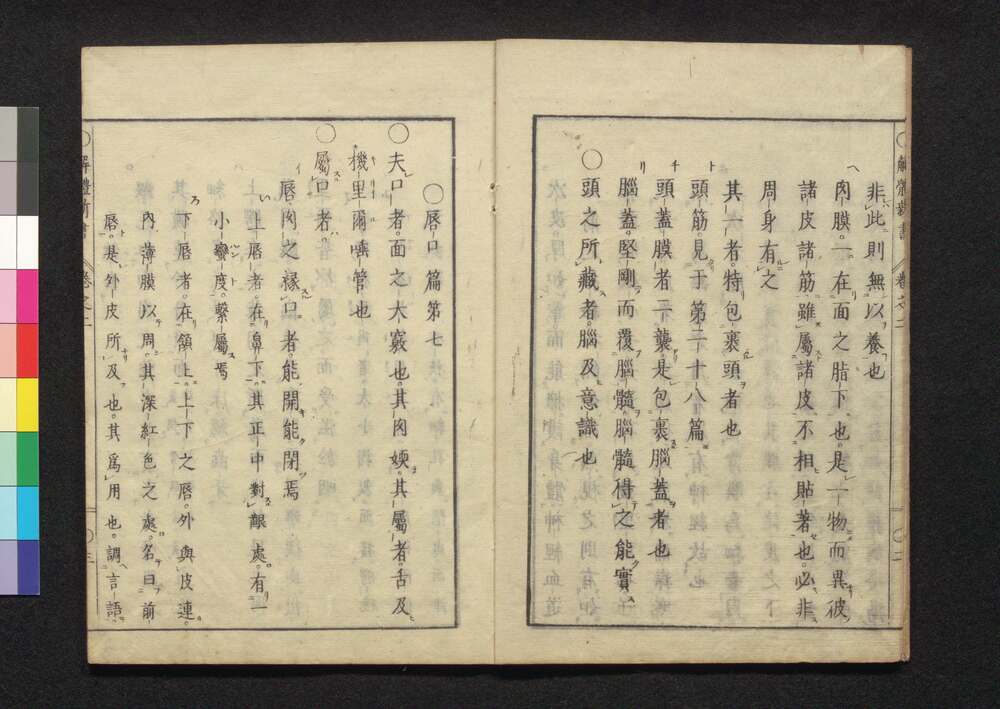 解體新書 卷之二 〇二
非此則無以養也
ヘ
肉膜一在面之脂下也是一物而異彼
諸皮諸筋雖屬諸皮不相貼著也必非
周身有之
其一者特包裹頭者也
ト
頭筋見于第二十八篇
チ
頭蓋膜者平襲是包裹腦蓋者也
リ
腦蓋堅剛而覆腦髓腦髓得之能實
〇頭之所藏者腦及意識也
〇脣口篇第七
〇夫口者面之大竅也其肉㛐其屬者舌及
機里爾唾管也
〇屬口者
イ
脣肉之緣口者能開能閉焉
い
上脣者在鼻下其正中對齦處有一
小蠻度繫屬焉
ろ
下脣者在頷上上下之脣外與皮連
內薄膜以周其深紅色之處名曰前
脣是外皮所及也其爲用也調言語
解體新書 卷之二 〇三